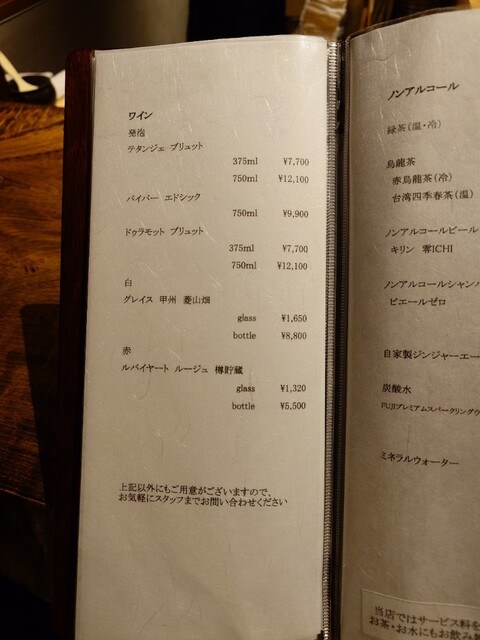 ワイン
発泡
テタンジェ ブリュット
375ml ¥7,700
750ml ¥12,100
パイパー エドシック
750ml ¥9,900
ドゥラモット ブリュット
375ml ¥7,700
750ml ¥12,100
白
グレイス 甲州 菱山畑
glass ¥1,650
bottle ¥8,800
赤
ルバイヤート ルージュ 樽貯蔵
glass ¥1,320
bottle ¥5,500
上記以外にもご用意がございますので、
お気軽にスタッフまでお問い合わせください
ノンアルコール
緑茶(温・冷)
烏龍茶
赤烏龍茶(冷)
台湾四季春茶(温)
ノンアルコールビール
キリン 零ICHI
ノンアルコールシャンパ
ピエールゼロ
自家製ジンジャーエー
炭酸水
FUJIプレミアムスパークリングウ
ミネラルウォーター
当店ではサービス料を
お茶・お水にもお飲み